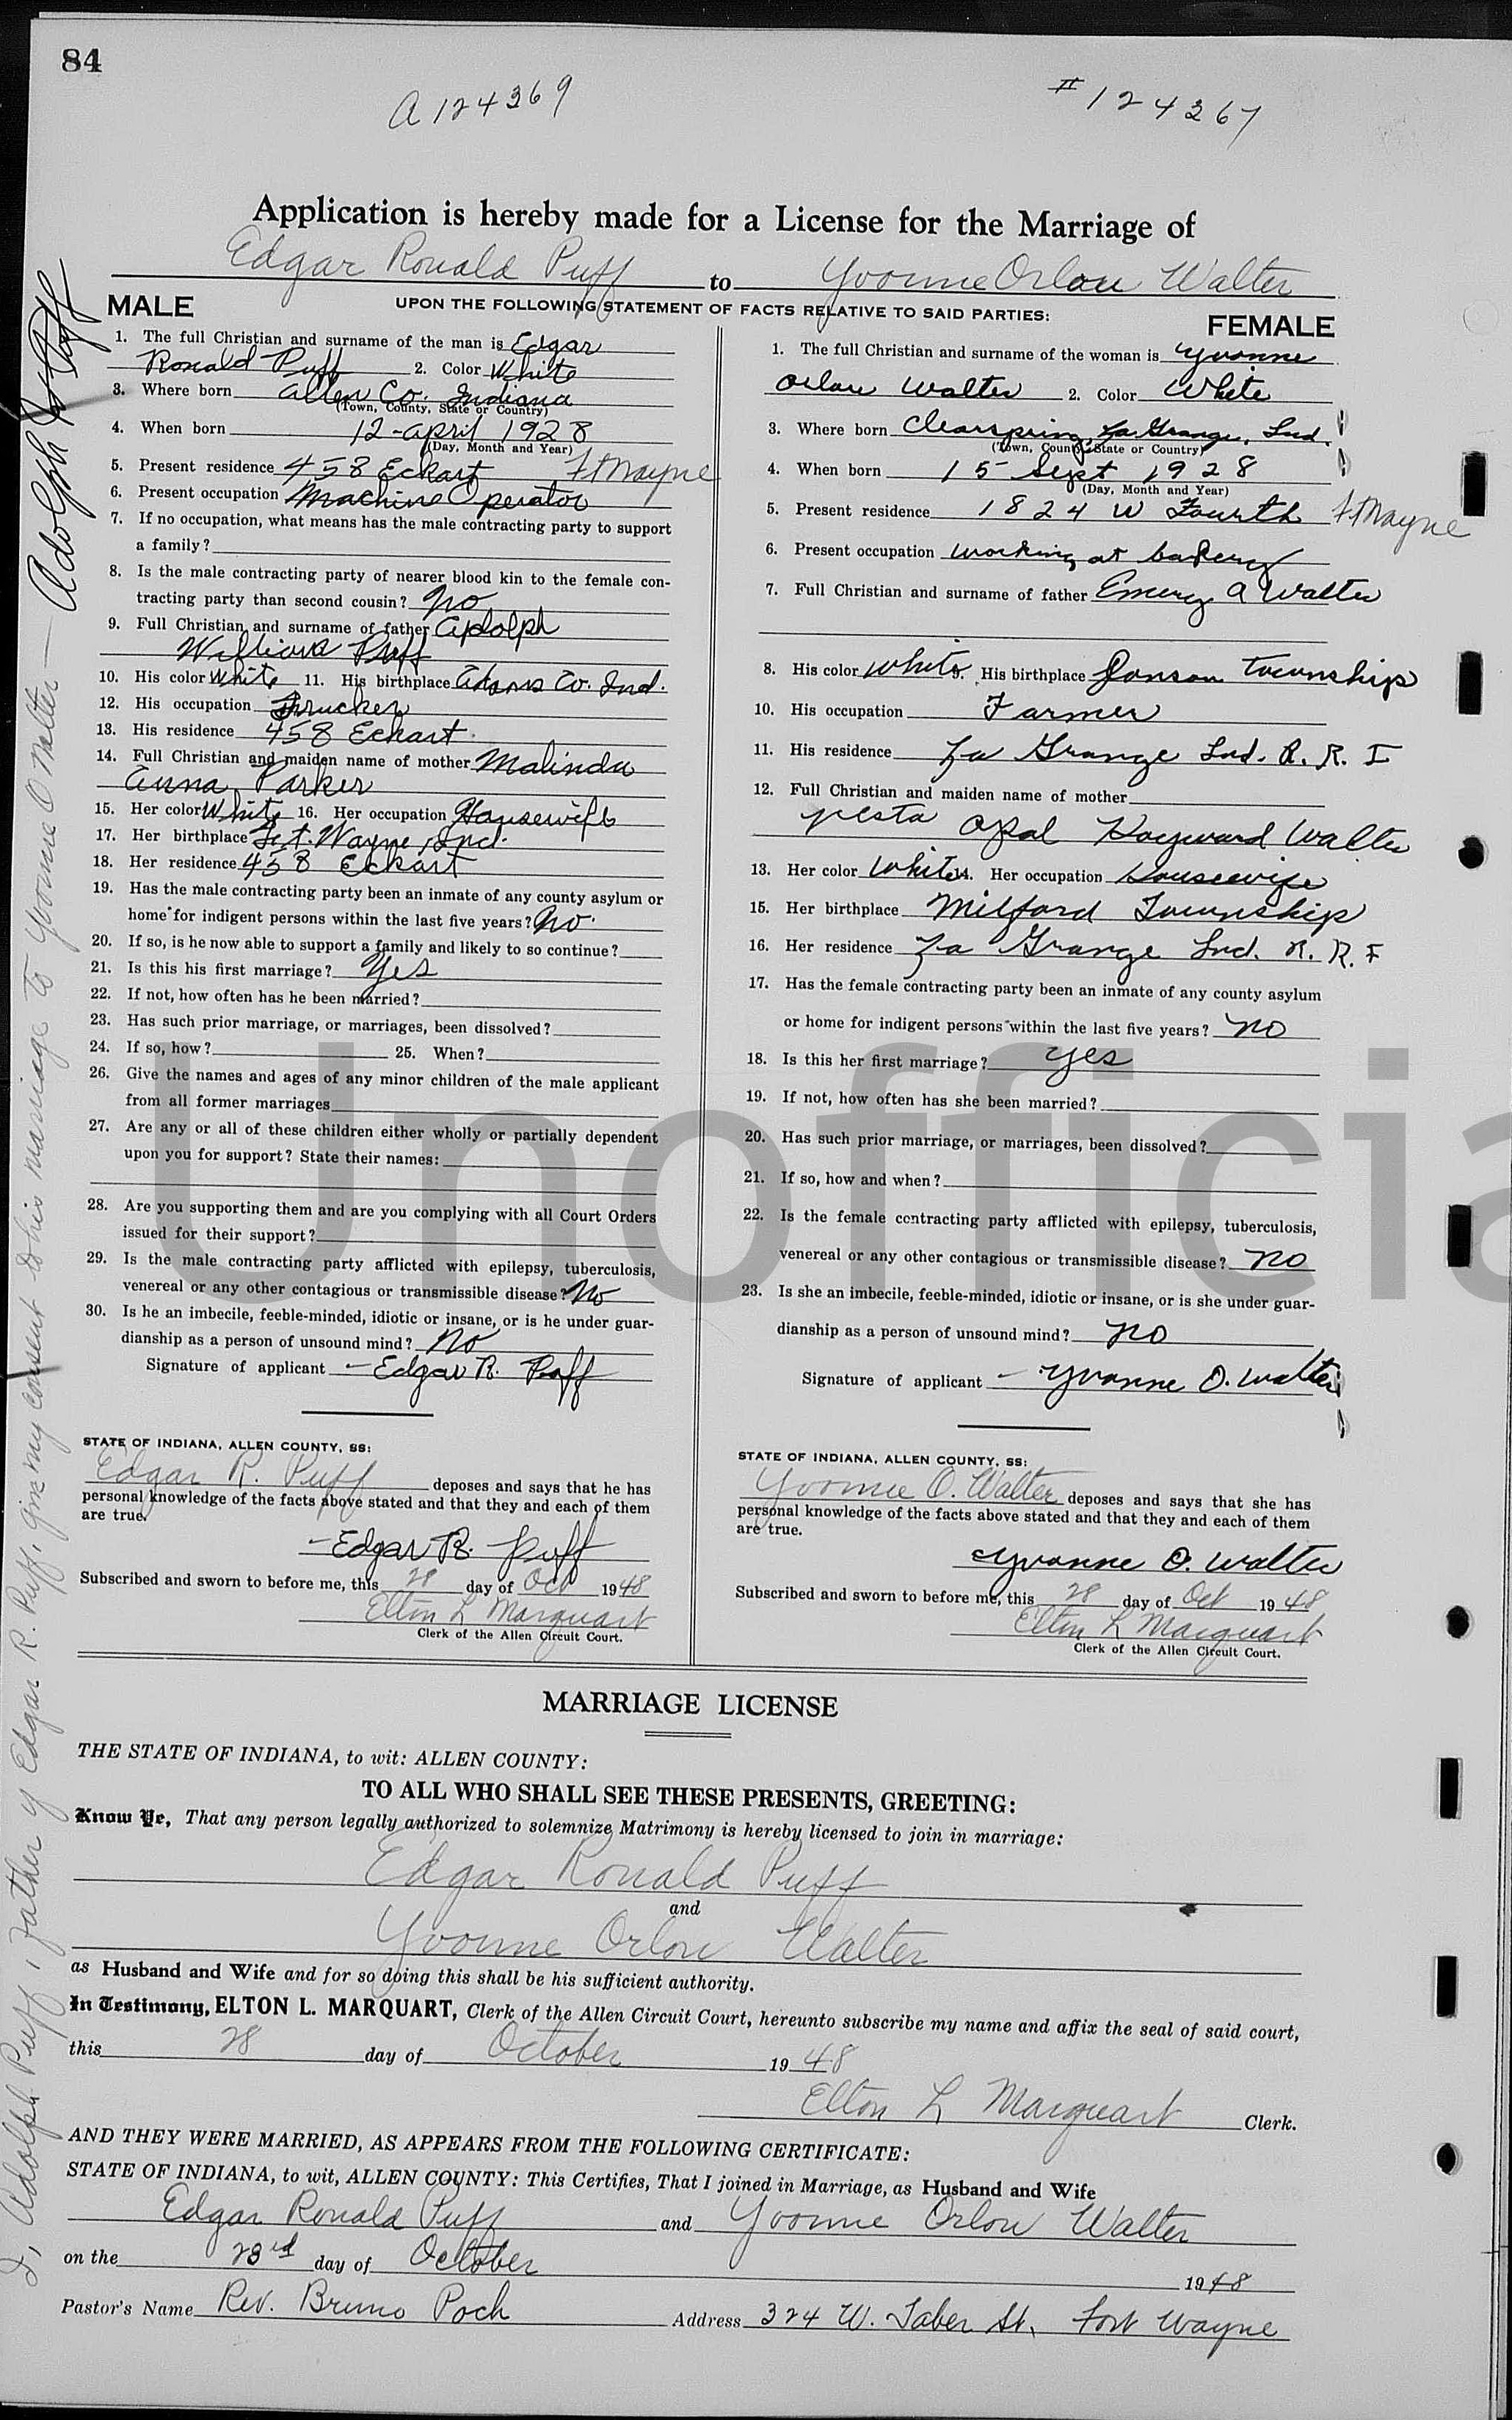 84
A 124369
#124367
Application is hereby made for a License for the Marriage of
Edgar Ronald Puff to Yvonne Orlou Walter
UPON THE FOLLOWING STATEMENT OF FACTS RELATIVE TO SAID PARTIES:
MALE
1. The full Christian and surname of the man is Edgar
Ronald Puff 2. Color White
3. Where born Allen Co. Indiana
(Town, County, State or Country)
4. When born 12-April 1928
(Day, Month and Year)
5. Present residence 458 Eckart Ft Wayne
6. Present occupation Machine Operator
7. If no occupation, what means has the male contracting party to support
a family?
8. Is the male contracting party of nearer blood kin to the female con-
tracting party than second cousin? No
9. Full Christian and surname of father Adolph
William Puff
10. His color White 11. His birthplace Adams Co. Ind.
12. His occupation Trucker
13. His residence 458 Eckart.
14. Full Christian and maiden name of mother Malinda
Anna Parker
15. Her color White 16. Her occupation Housewife
17. Her birthplace Ft. Wayne, Ind.
18. Her residence 458 Eckart
19. Has the male contracting party been an inmate of any county asylum or
home for indigent persons within the last five years? No.
20. If so, is he now able to support a family and likely to so continue?
21. Is this his first marriage? Yes
22. If not, how often has he been married?
23. Has such prior marriage, or marriages, been dissolved?
24. If so, how? 25. When?
26. Give the names and ages of any minor children of the male applicant
from all former marriages
27. Are any or all of these children either wholly or partially dependent
upon you for support? State their names:
28. Are you supporting them and are you complying with all Court Orders
issued for their support?
29. Is the male contracting party afflicted with epilepsy, tuberculosis,
venereal or any other contagious or transmissible disease? No
30. Is he an imbecile, feeble-minded, idiotic or insane, or is he under guar-
dianship as a person of unsound mind? No
Signature of applicant - Edgar R. Puff
STATE OF INDIANA, ALLEN COUNTY, SS:
Edgar R. Puff deposes and says that he has
personal knowledge of the facts above stated and that they and each of them
are true.
- Edgar R. Puff
Subscribed and sworn to before me, this 28 day of Oct 1948
Elton L Marquart
Clerk of the Allen Circuit Court.
FEMALE
1. The full Christian and surname of the woman is Yvonne
Orlou Walter 2. Color White
3. Where born Clearspring, La Grange, Ind.
(Town, County, State or Country)
4. When born 15 Sept 1928
(Day, Month and Year)
5. Present residence 1824 W Fourth Ft Wayne
6. Present occupation working at bakery
7. Full Christian and surname of father Emery A Walter
8. His color White 9. His birthplace Township
10. His occupation Farmer
11. His residence La Grange Ind. R. R. I
12. Full Christian and maiden name of mother
Opal Walter
13. Her color White 14. Her occupation Housewife
15. Her birthplace Milford Township
16. Her residence La Grange Ind. R. R. I
17. Has the female contracting party been an inmate of any county asylum
or home for indigent persons within the last five years? No
18. Is this her first marriage? Yes
19. If not, how often has she been married?
20. Has such prior marriage, or marriages, been dissolved?
21. If so, how and when?
22. Is the female contracting party afflicted with epilepsy, tuberculosis,
venereal or any other contagious or transmissible disease? No
23. Is she an imbecile, feeble-minded, idiotic or insane, or is she under guar-
dianship as a person of unsound mind? No
Signature of applicant - Yvonne O. Walter
STATE OF INDIANA, ALLEN COUNTY, SS:
Yvonne O. Walter deposes and says that she has
personal knowledge of the facts above stated and that they and each of them
are true.
Yvonne O. Walter
Subscribed and sworn to before me, this 28 day of Oct 1948
Elton L Marquart
Clerk of the Allen Circuit Court.
MARRIAGE LICENSE
THE STATE OF INDIANA, to wit: ALLEN COUNTY:
TO ALL WHO SHALL SEE THESE PRESENTS, GREETING:
Know Ye, That any person legally authorized to solemnize Matrimony is hereby licensed to join in marriage:
Edgar Ronald Puff
and
Yvonne Orlou Walter
as Husband and Wife and for so doing this shall be his sufficient authority.
In Testimony, ELTON L. MARQUART, Clerk of the Allen Circuit Court, hereunto subscribe my name and affix the seal of said court,
this 28 day of October 1948
Elton L Marquart Clerk.
AND THEY WERE MARRIED, AS APPEARS FROM THE FOLLOWING CERTIFICATE:
STATE OF INDIANA, to wit, ALLEN COUNTY: This Certifies, That I joined in Marriage, as Husband and Wife
Edgar Ronald Puff and Yvonne Orlou Walter
on the 23rd day of October 1948
Pastor's Name Rev. Bruno Poch Address 324 W. Taber St. Fort Wayne
I, Adolph Puff, father of Edgar R. Puff, give my consent to his marriage to Yvonne O Walter — Adolph W Puff
Unofficia